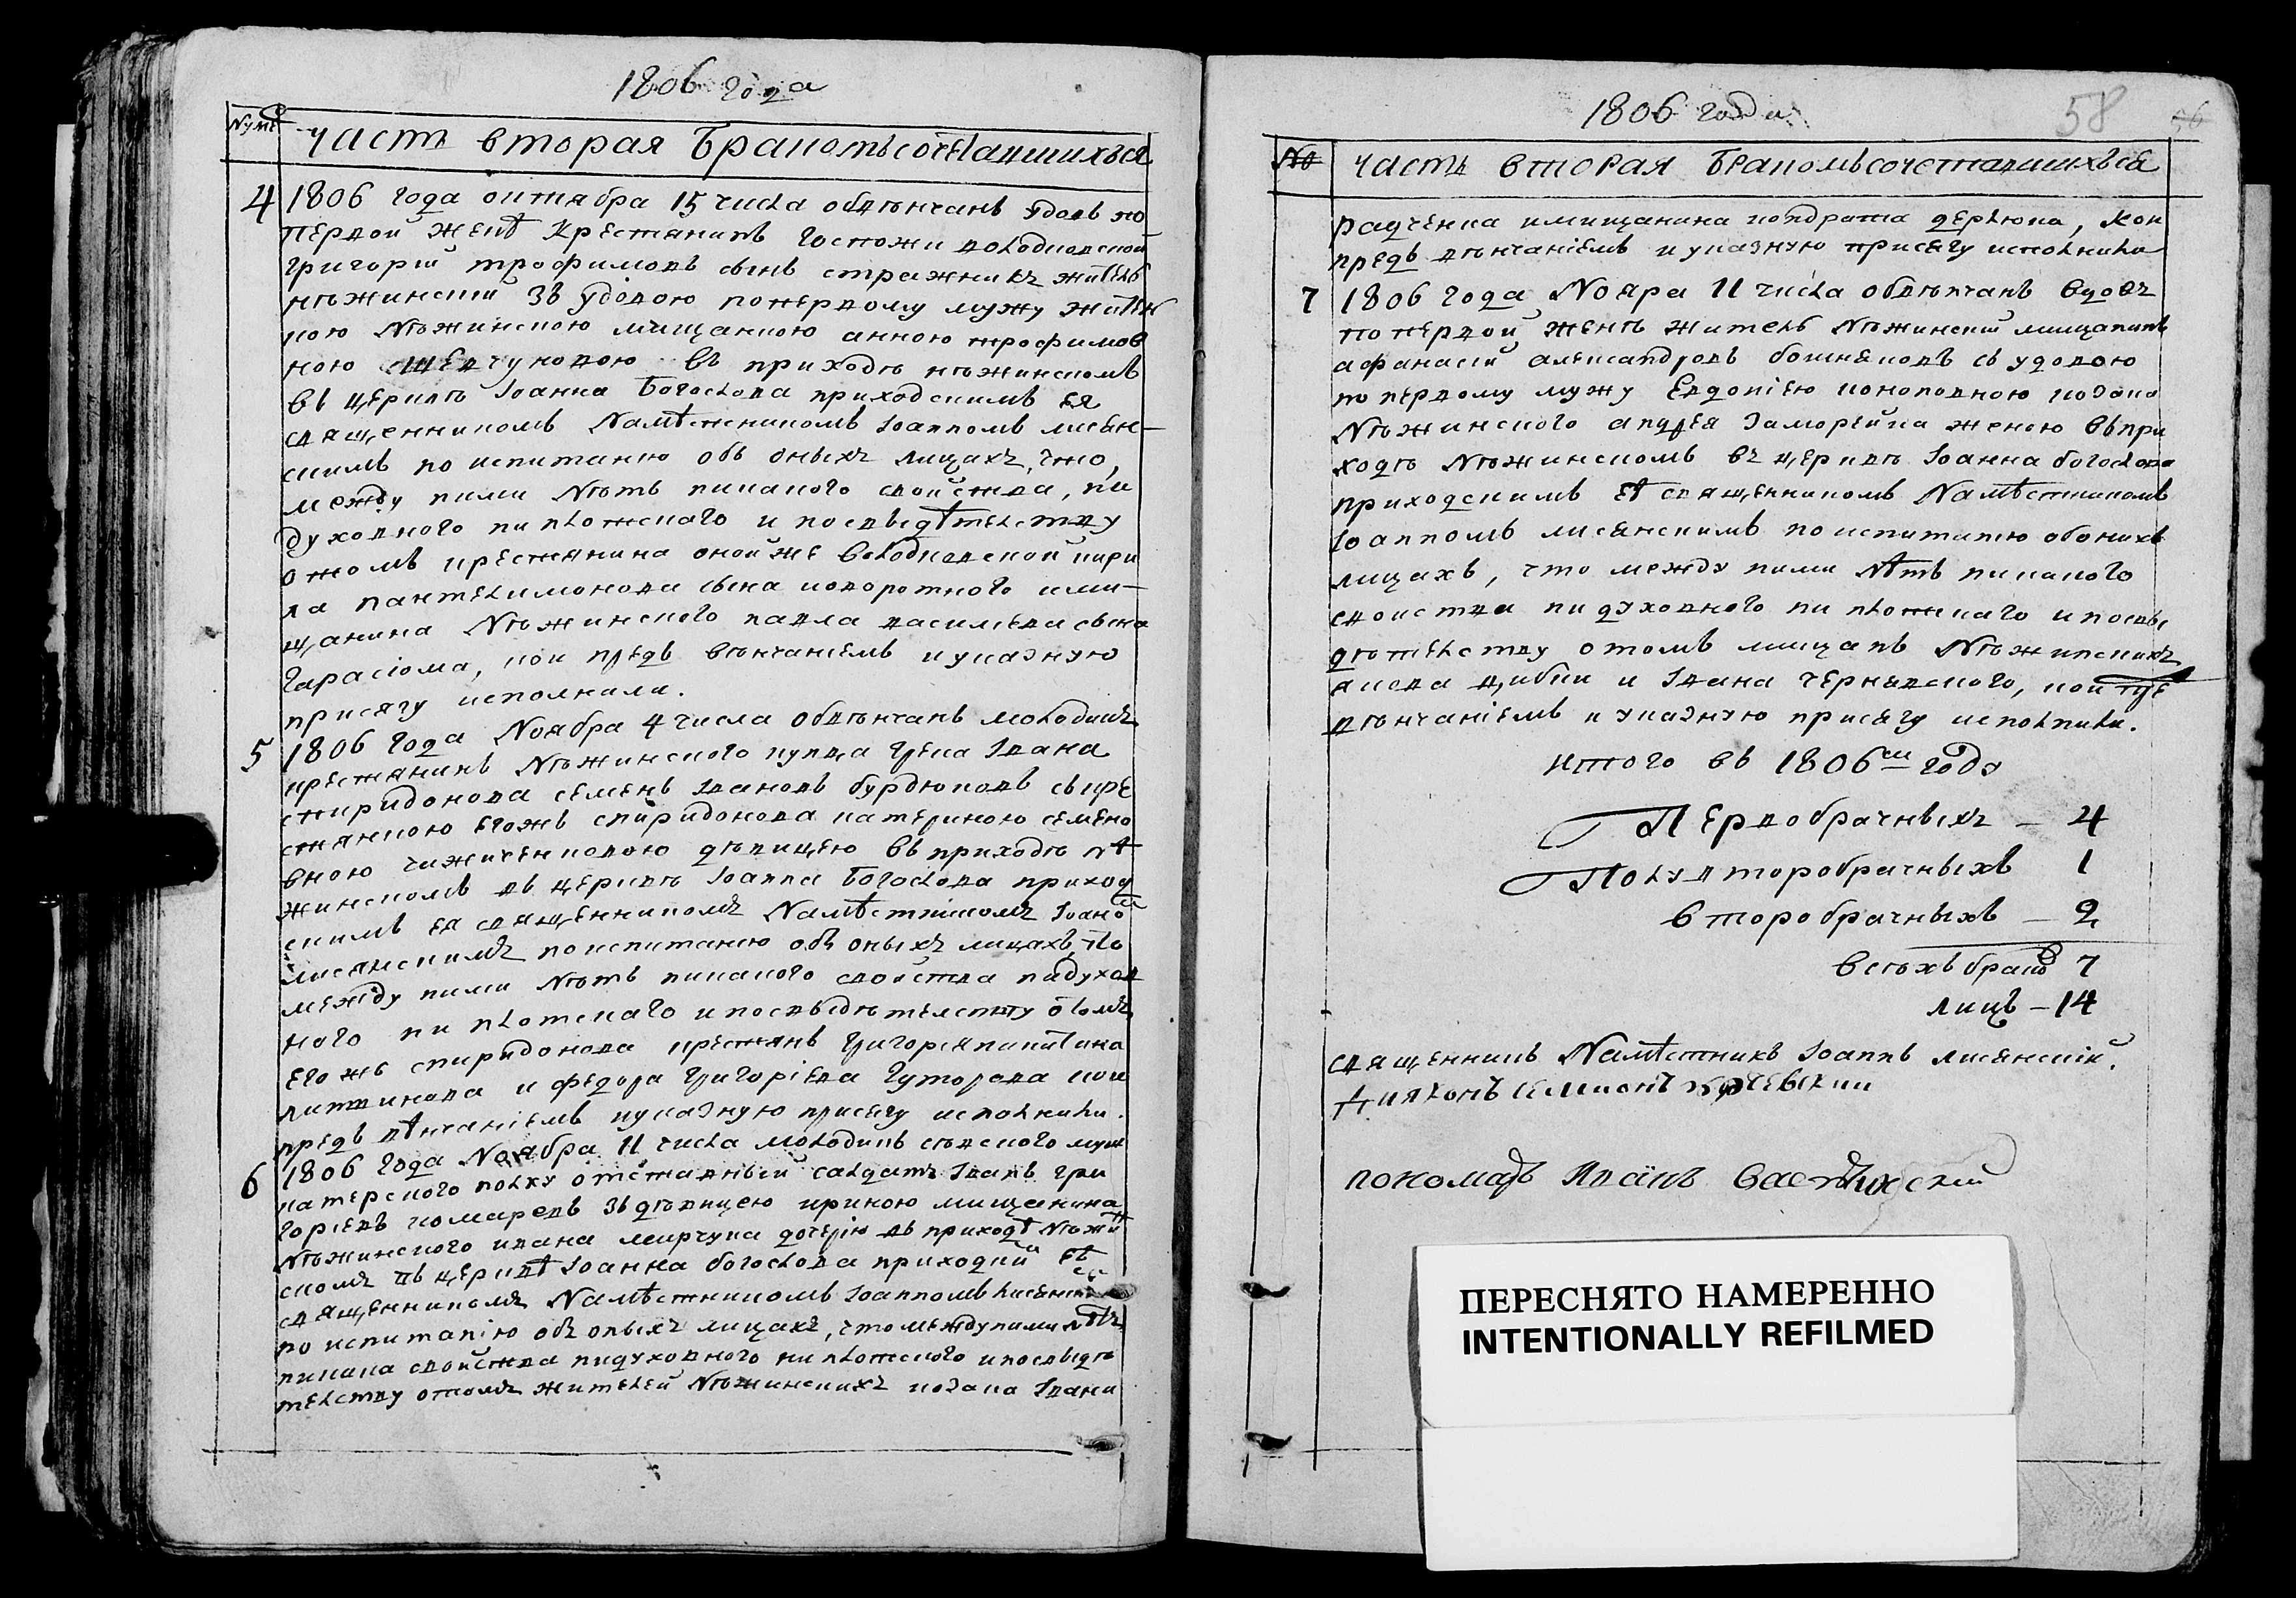 1806 года
Нуме
часть вторая бракомъ сочетавшихъся
4 1806 года октября 15 числа обвѣнчанъ удовъ по
первой женѣ крестянинъ госпожи володковской
григорій трофимовъ сынъ стражникъ житель
нѣжинскій зъ удовою попервому мужу житель
кою Нѣжинскою мищанкою анною трофимов
ною въ приходѣ нѣжинскомъ
въ церквѣ Іоанна Богослова приходскимъ ея
священникомъ Намѣстникомъ Іоанномъ лисян-
скимъ по испитанію объ оныхъ лицахъ, что,
между ними Нѣтъ никакого свойства, ни
духовного ни плотского и посвидѣтелству
отомъ крестянина оной же Володковской кири
ла пантелимонова сына коворотного и ми-
щанина Нѣжинского павла василіева сына
Гарасіома, кои предъ вѣнчаніемъ и указную
присягу исполнили.
5 1806 года Ноября 4 числа обвѣнчанъ молодикъ
крестянинъ Нѣжинского купца грека Івана
спиридонова семенъ Івановъ бурдюковъ съ кре
стянкою егожъ спиридонова катериною семено
вною чижиченковою дѣвицею въ приходѣ нѣ
жинскомъ въ церквѣ Іоанна Богослова приход
скимъ ея священникомъ Намѣстникомъ Іоано
лисянскимъ по испитанію объ оныхъ лицахъ, что
между ними Нѣтъ никакого свойства ни духов
ного ни плотского и посвыдѣтелству отомъ,
его жъ спиридонова крестянъ григорія никитина
литвинова и федора григоріева гуторова кои
предъ вѣнчаніемъ и указную присягу исполнили.
6 1806 года Ноября 11 числа молодикъ сѣвского муш
катерского полку отставный салдатъ Іванъ гри
горіевъ комаревъ зъ дѣвицею ириною мищанина
Нѣжинского ивана марчука дочерію въ приходѣ Нѣжин
скомъ въ церквѣ Іоанна богослова приходкимъ еѣ
священникомъ Намѣстникомъ Іоанномъ лисянски
по испитанію объ оныхъ лицахъ, что между ними нѣтъ
никака свойства ни духовного ни плотского и посвидѣ
телству отомъ жителей Нѣжинскихъ козака Івана
1806 года
58
56
№
часть вторая Бракомъ сочетавшихъся
радченка и мищанина кондрата дерклюка, кои
предъ вѣнчаніемъ и указную присягу исполнили
7 1806 года Ноября 11 числа обвѣнчанъ вдовъ
по первой женѣ житель Нѣжинскій мищанинъ
афанасій александровъ бошняковъ съ удовою
по первому мужу Евдокіею кононовною козака
Нѣжинского андрея заморейка женою въ при
ходѣ Нѣжинскомъ въ церквѣ Іоанна богослова
приходскимъ еѣ священникомъ Намѣстникомъ
Іоанномъ лисянскимъ по испитанію обонихъ
лицахъ, что между ними Нѣтъ никакого
свойства ни духовного ни плотского и посвы
дѣтелству отомъ мищанъ Нѣжинскихъ
якова цибки и Івана чернявского, кои пре
вѣнчаніемъ и указную присягу исполнили.
Итого въ 1806м годѵ
Первобрачныхъ — 4
Полувторобрачныхъ 1
Второбрачныхъ — 2
всѣхъ браковъ 7
лицъ — 14
священникъ Намѣстникъ Іоаннъ лисянскій.
Діяконъ
пономарь Иванъ
ПЕРЕСНЯТО НАМЕРЕННО
INTENTIONALLY REFILMED